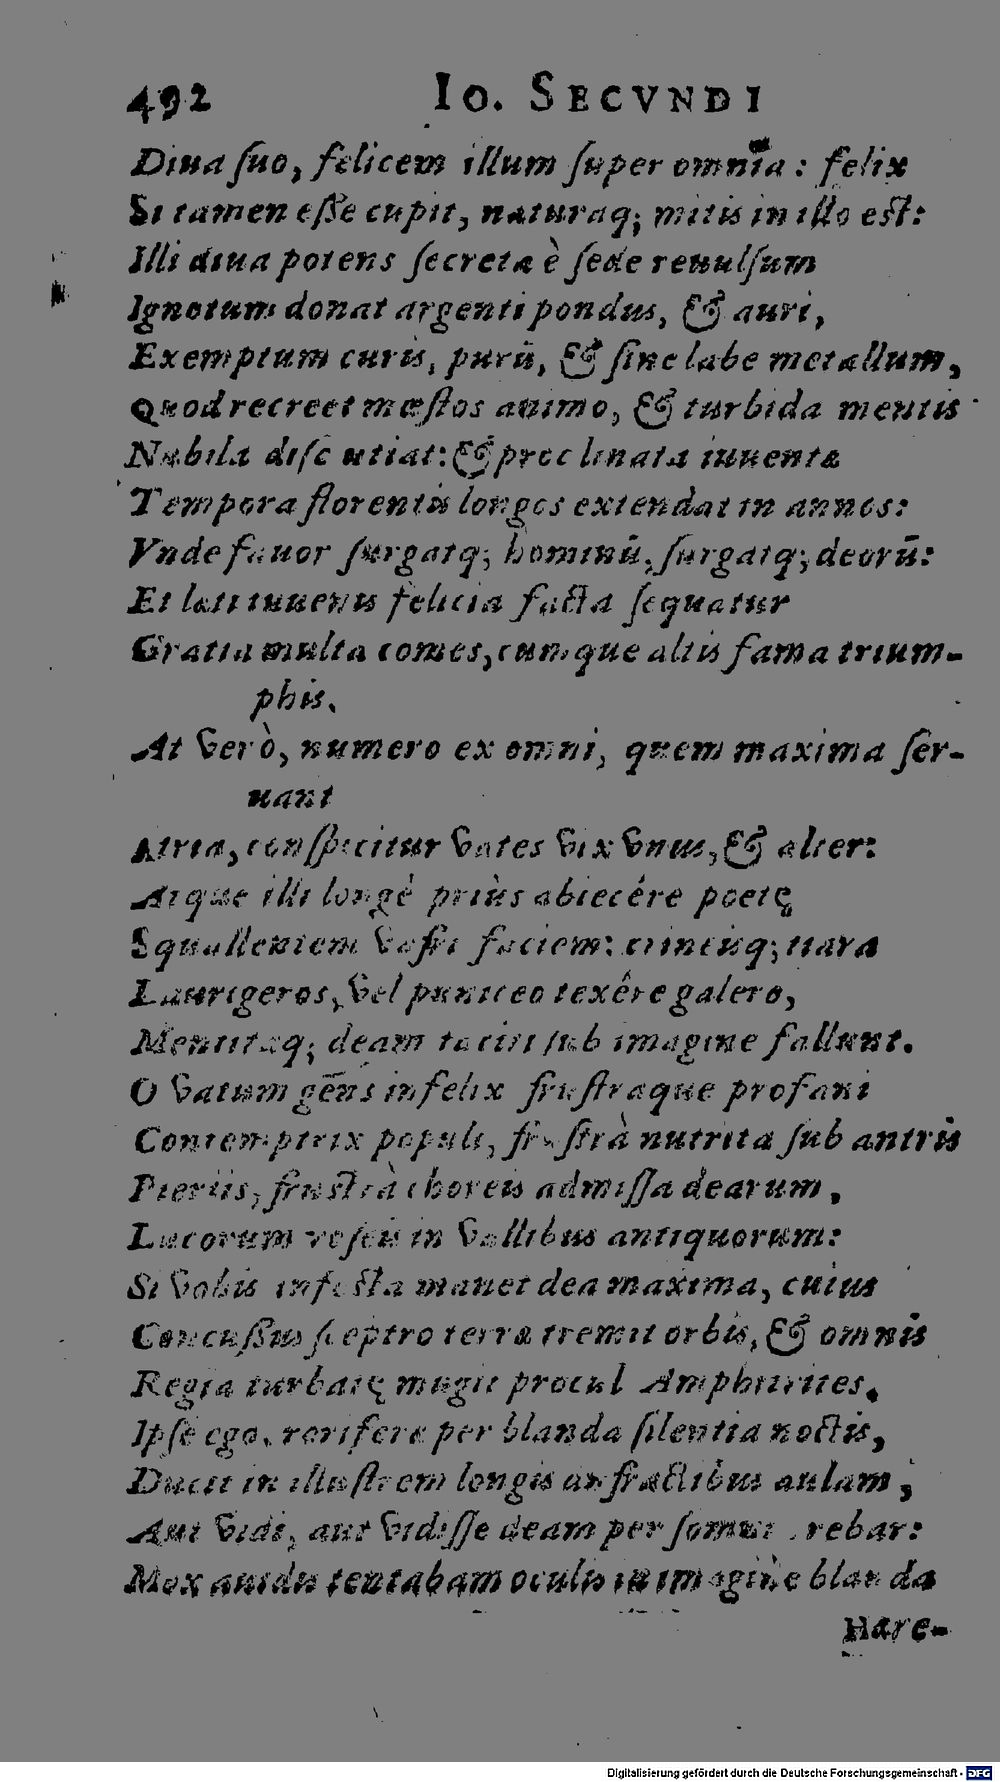 492 IO. SECVNDI
Diua ſuo, felicem illum ſuper omnia : felix
Si tamen eſſe cupit, naturaq; mitis in illo eſt:
Illi diua potens ſecreta è ſede reuulſum
Ignotum donat argenti pondus, & auri,
Exemptum curis, purū, & ſine labe metallum,
Quod recreet mœſtos animo, & turbida mentis
Nubila diſcutiat: & proclinata iuuentæ
Tempora florentis longos extendat in annos:
Vnde fauor ſurgatq; hominū, ſurgatq; deorū:
Et læti iuuenis felicia facta ſequatur
Gratia multa comes, cumque altis fama trium-
phis.
At verò, numero ex omni, quem maxima ſer-
uant
Atria, conſpicitur vates vix vnus, & alter:
Atque illi longè priùs abiecêre poetę
Squallentem vaſti faciem: crineisq; tiara
Laurigeros, vel puniceo texêre galero,
Mentitaq; deam taciti ſub imagine fallunt.
O vatum gēns infelix fruſtraque profani
Contemptrix populi, fruſtrà nutrita ſub antris
Pieriis, fruſtrà choreis admiſſa dearum,
Lucorum roſeis in vallibus antiquorum:
Si vobis infeſta manet dea maxima, cuius
Concuſſus ſceptro terræ tremit orbis, & omnis
Regia turbatę mugit procul Amphitrites.
Ipſe ego, roriferæ per blanda ſilentia noctis,
Ducit in illuſtrem longis anfractibus aulam,
Aut vidi, aut vidiſſe deam per ſomnia rebar:
Mox auidis tentabam oculis in imagine blanda
Hære-
Digitalisierung gefördert durch die Deutsche Forschungsgemeinschaft - DFG